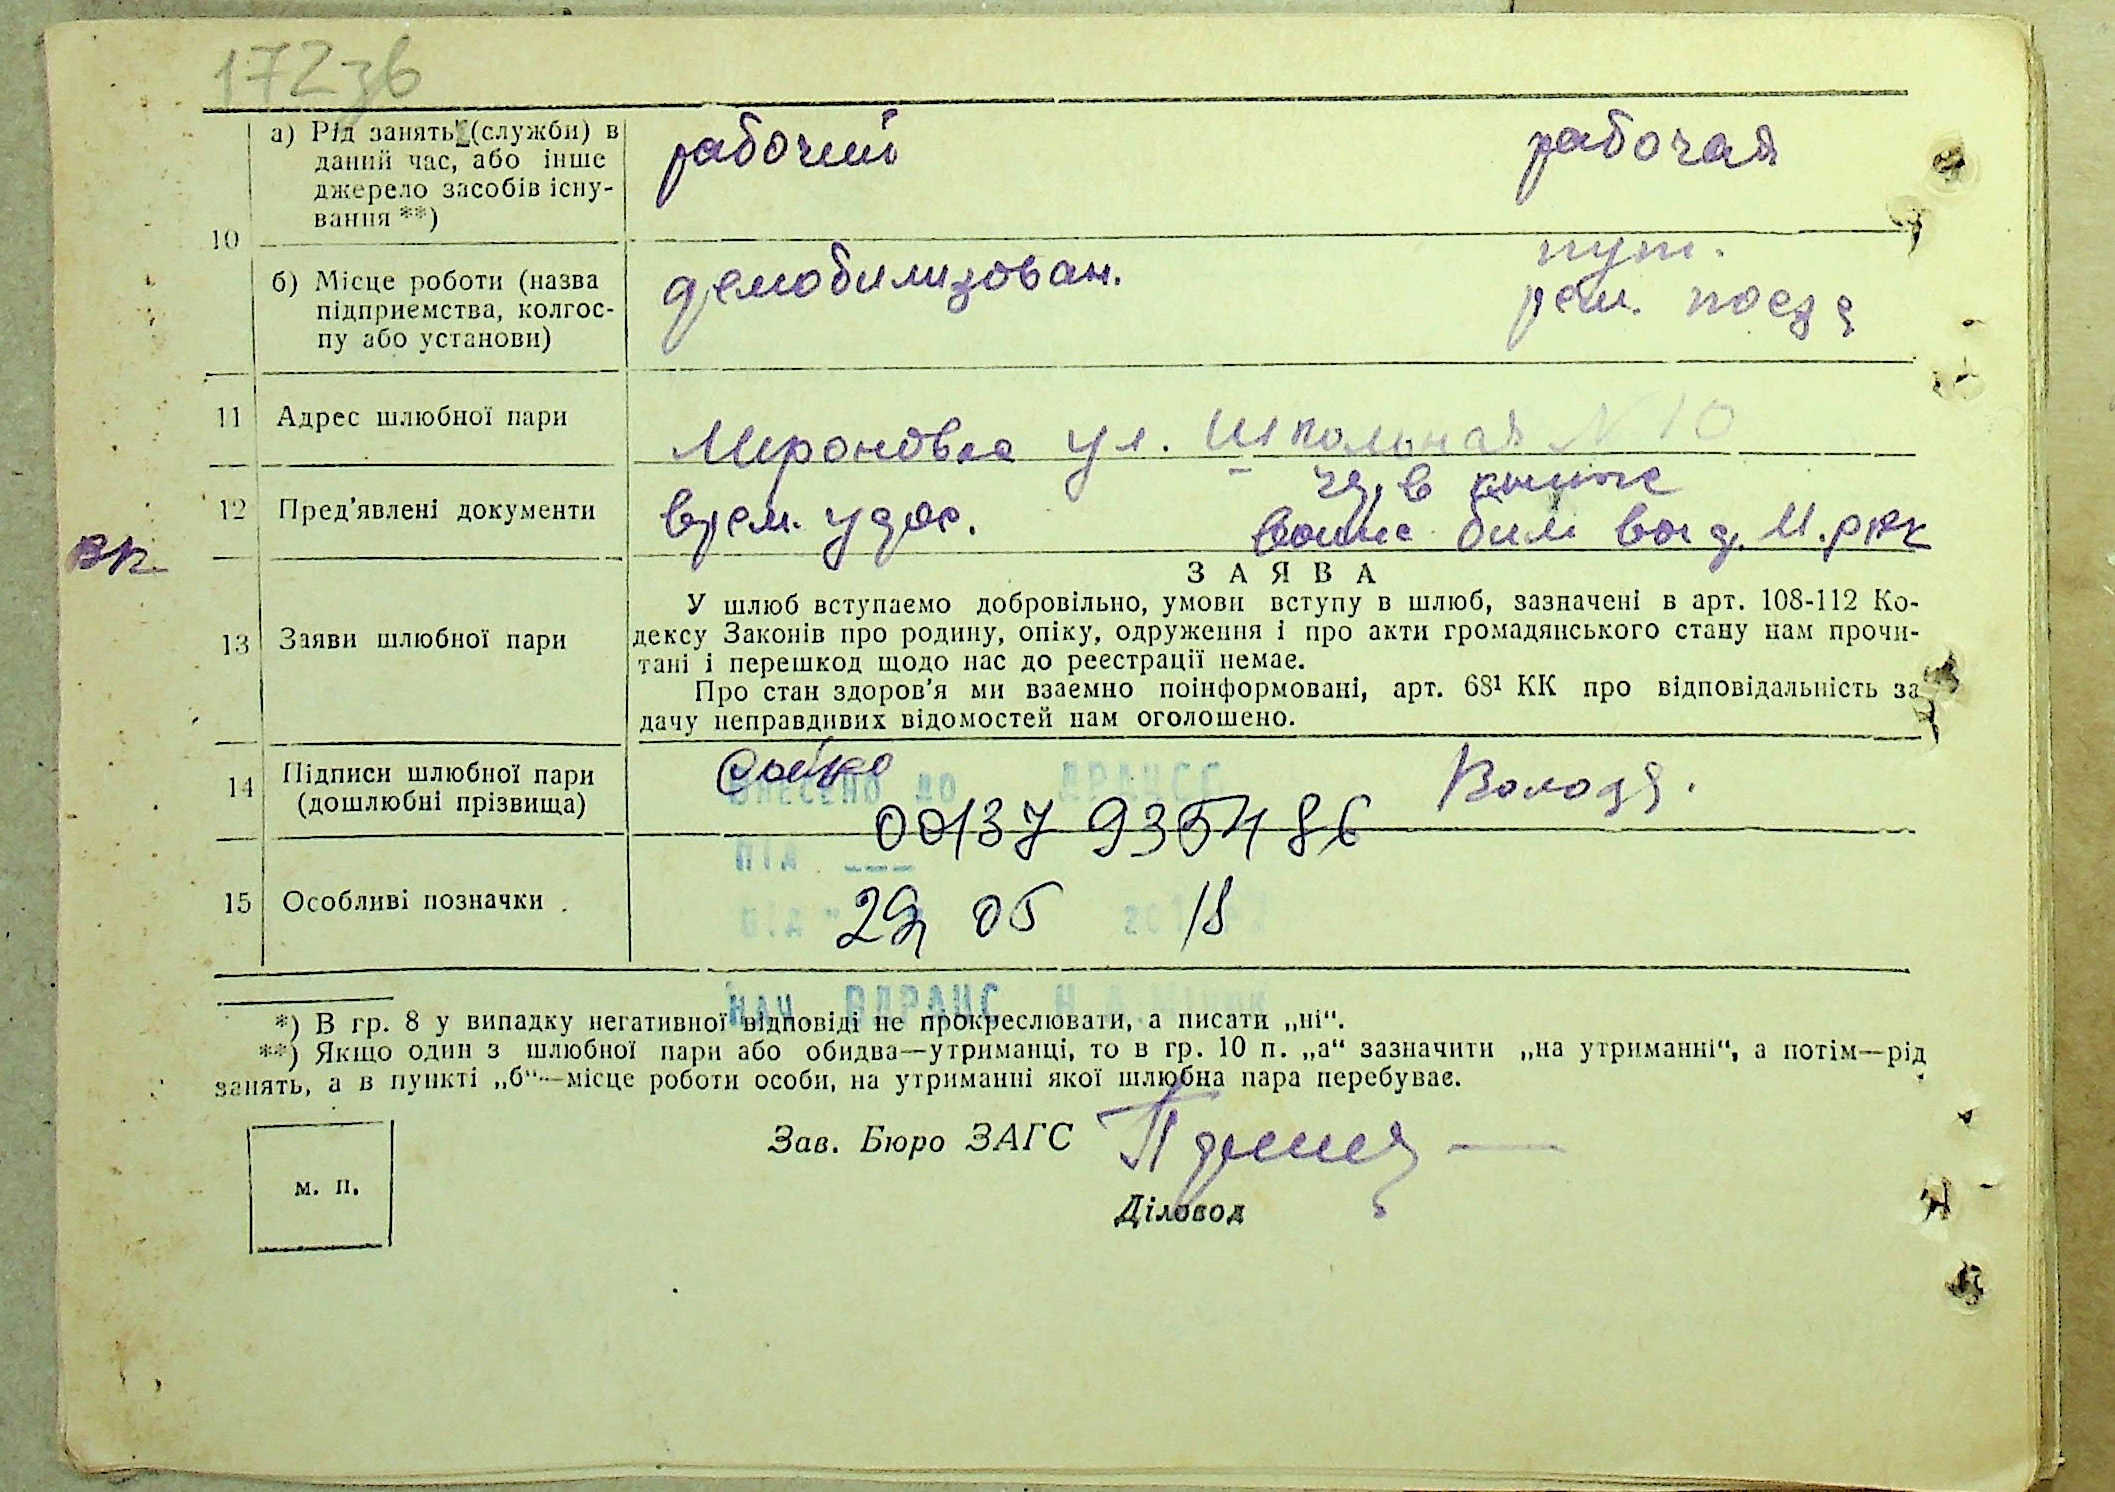 172зв
а) Рід занять (служби) в
даний час, або інше
джерело засобів існу-
вання **)
рабочий
рабочая
10
б) Місце роботи (назва
підприємства, колгос-
пу або установи)
демобилизован.
пут.
рем. поезд
11 Адрес шлюбної пари
Мероновка ул. Школьная № 10
12 Пред'явлені документи
врем. удос.
М. РЖК
вк
13 Заяви шлюбної пари
ЗАЯВА
У шлюб вступаємо добровільно, умови вступу в шлюб, зазначені в арт. 108-112 Ко-
дексу Законів про родину, опіку, одруження і про акти громадянського стану нам прочи-
тані і перешкод щодо нас до реєстрації немає.
Про стан здоров'я ми взаємно поінформовані, арт. 68¹ КК про відповідальність за
дачу неправдивих відомостей нам оголошено.
14 Підписи шлюбної пари
(дошлюбні прізвища)
Сойко
Володя.
ВНЕСЕНО ДО ДРАЦСГ
00137935486
ПІД
15 Особливі позначки
29 05 18
НАЧ. ВДРАЦС
*) В гр. 8 у випадку негативної відповіді не прокреслювати, а писати „ні“.
**) Якщо один з шлюбної пари або обидва—утриманці, то в гр. 10 п. „а“ зазначити „на утриманні“, а потім—рід
занять, а в пункті „б“—місце роботи особи, на утриманні якої шлюбна пара перебуває.
Зав. Бюро ЗАГС
м. п.
Діловод